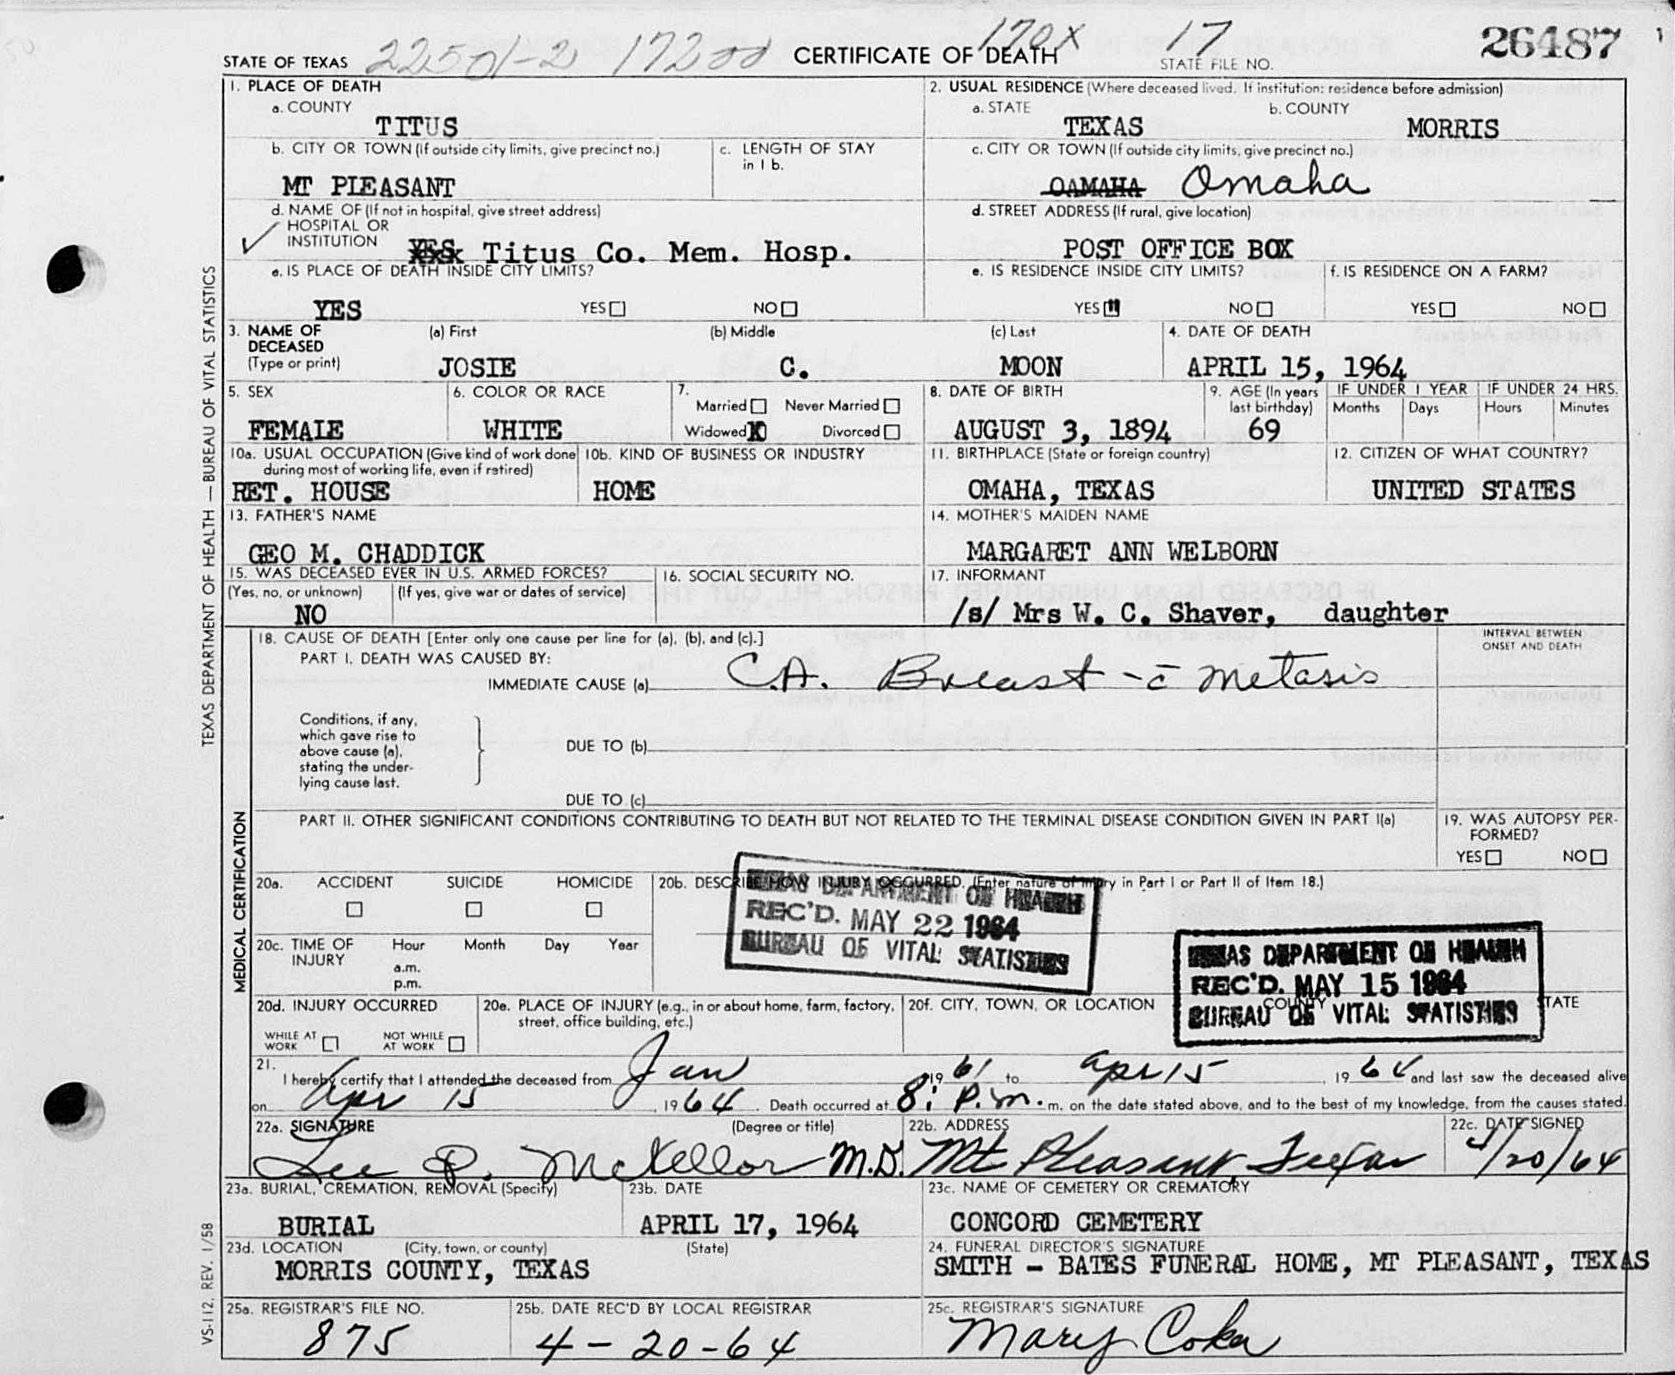 STATE OF TEXAS 22501-2 17200 CERTIFICATE OF DEATH 170X 17 STATE FILE NO. 26487
1. PLACE OF DEATH
a. COUNTY
TITUS
b. CITY OR TOWN (If outside city limits, give precinct no.)
MT PLEASANT
c. LENGTH OF STAY in 1 b.
d. NAME OF (If not in hospital, give street address)
HOSPITAL OR
INSTITUTION
YES Titus Co. Mem. Hosp.
e. IS PLACE OF DEATH INSIDE CITY LIMITS?
YES YES NO
2. USUAL RESIDENCE (Where deceased lived. If institution: residence before admission)
a. STATE b. COUNTY
TEXAS MORRIS
c. CITY OR TOWN (If outside city limits, give precinct no.)
OAMAHA Omaha
d. STREET ADDRESS (If rural, give location)
POST OFFICE BOX
e. IS RESIDENCE INSIDE CITY LIMITS? f. IS RESIDENCE ON A FARM?
YES NO YES NO
3. NAME OF DECEASED (Type or print)
(a) First (b) Middle (c) Last
JOSIE C. MOON
4. DATE OF DEATH
APRIL 15, 1964
5. SEX
FEMALE
6. COLOR OR RACE
WHITE
7.
Married Never Married
Widowed X Divorced
8. DATE OF BIRTH
AUGUST 3, 1894
9. AGE (In years last birthday)
69
IF UNDER 1 YEAR IF UNDER 24 HRS.
Months Days Hours Minutes
10a. USUAL OCCUPATION (Give kind of work done during most of working life, even if retired)
RET. HOUSE
10b. KIND OF BUSINESS OR INDUSTRY
HOME
11. BIRTHPLACE (State or foreign country)
OMAHA, TEXAS
12. CITIZEN OF WHAT COUNTRY?
UNITED STATES
13. FATHER'S NAME
GEO M. CHADDICK
14. MOTHER'S MAIDEN NAME
MARGARET ANN WELBORN
15. WAS DECEASED EVER IN U.S. ARMED FORCES?
(Yes, no, or unknown) (If yes, give war or dates of service)
NO
16. SOCIAL SECURITY NO.
17. INFORMANT
/s/ Mrs W. C. Shaver, daughter
18. CAUSE OF DEATH [Enter only one cause per line for (a), (b), and (c).]
PART I. DEATH WAS CAUSED BY:
IMMEDIATE CAUSE (a) C.A. Breast - c̄ metasis
INTERVAL BETWEEN ONSET AND DEATH
Conditions, if any, which gave rise to above cause (a), stating the under-lying cause last.
DUE TO (b)
DUE TO (c)
PART II. OTHER SIGNIFICANT CONDITIONS CONTRIBUTING TO DEATH BUT NOT RELATED TO THE TERMINAL DISEASE CONDITION GIVEN IN PART I(a)
19. WAS AUTOPSY PER-FORMED?
YES NO
20a. ACCIDENT SUICIDE HOMICIDE
20b. DESCRIBE HOW INJURY OCCURRED. (Enter nature of injury in Part I or Part II of Item 18.)
TEXAS DEPARTMENT OF HEALTH
REC'D. MAY 22 1964
BUREAU OF VITAL STATISTICS
TEXAS DEPARTMENT OF HEALTH
REC'D. MAY 15 1964
BUREAU OF VITAL STATISTICS
20c. TIME OF INJURY Hour Month Day Year
a.m.
p.m.
20d. INJURY OCCURRED
WHILE AT WORK NOT WHILE AT WORK
20e. PLACE OF INJURY (e.g., in or about home, farm, factory, street, office building, etc.)
20f. CITY, TOWN, OR LOCATION COUNTY STATE
21.
I hereby certify that I attended the deceased from Jan 1961 to Apr 15, 1964 and last saw the deceased alive
on Apr 15, 1964. Death occurred at 8: P.m. m. on the date stated above, and to the best of my knowledge, from the causes stated.
22a. SIGNATURE (Degree or title)
Lee P. McKellor M.D.
22b. ADDRESS
Mt Pleasant, Texas
22c. DATE SIGNED
4/20/64
23a. BURIAL, CREMATION, REMOVAL (Specify)
BURIAL
23b. DATE
APRIL 17, 1964
23c. NAME OF CEMETERY OR CREMATORY
CONCORD CEMETERY
23d. LOCATION (City, town, or county) (State)
MORRIS COUNTY, TEXAS
24. FUNERAL DIRECTOR'S SIGNATURE
SMITH - BATES FUNERAL HOME, MT PLEASANT, TEXAS
25a. REGISTRAR'S FILE NO.
875
25b. DATE REC'D BY LOCAL REGISTRAR
4-20-64
25c. REGISTRAR'S SIGNATURE
Mary Coker
TEXAS DEPARTMENT OF HEALTH — BUREAU OF VITAL STATISTICS
MEDICAL CERTIFICATION
VS-112, REV. 1/58